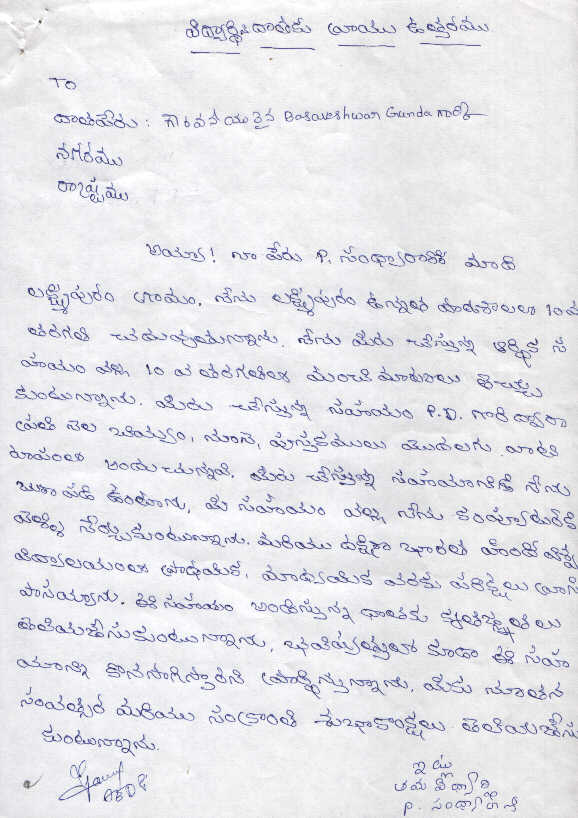 విద్యార్థి దాతకు వ్రాయు ఉత్తరము
TO
దాతపేరు : గౌరవనీయులైన Basaveshwar Gunda గారికి
నగరము
రాష్ట్రము
అయ్యా! నా పేరు P. సంధ్యారాణి మాది
లక్ష్మీపురం గ్రామం. నేను లక్ష్మీపురం ఉన్నత పాఠశాలలో 10వ
తరగతి చదువుచున్నాను. నేను మీరు చేస్తున్న ఆర్థిక స
హాయం వల్ల 10 వ తరగతిలో మంచి మార్కులు తెచ్చు
కుంటున్నాను. మీరు చేస్తున్న సహాయం P.D. గారి ద్వారా
ప్రతి నెల బియ్యం, నూనె, పుస్తకములు మొదలగు వాటి
రూపంలో అందుచున్నవి. మీరు చేస్తున్న సహాయానికి నేను
ఋణ పడి ఉంటాను. మీ సహాయం వల్ల నేను కంప్యూటర్‌కి
వెళ్ళి నేర్చుకుంటున్నాను. మరియు దక్షిణ భారత హిందీ విశ్వ
విద్యాలయంలో ప్రాథమిక, మాధ్యమిక వరకు పరీక్షలు వ్రాసి
పాసయ్యాను. ఈ సహాయం అందిస్తున్న దాతకు కృతజ్ఞతలు
తెలియజేసుకుంటున్నాను. భవిష్యత్తులో కూడా ఈ సహా
యాన్ని కొనసాగిస్తారని ప్రార్థిస్తున్నాను. మీకు నూతన
సంవత్సర మరియు సంక్రాంతి శుభాకాంక్షలు తెలియజేసు
కుంటున్నాను.
ఇట్లు
తమ విద్యార్థి
P. సంధ్యారాణి